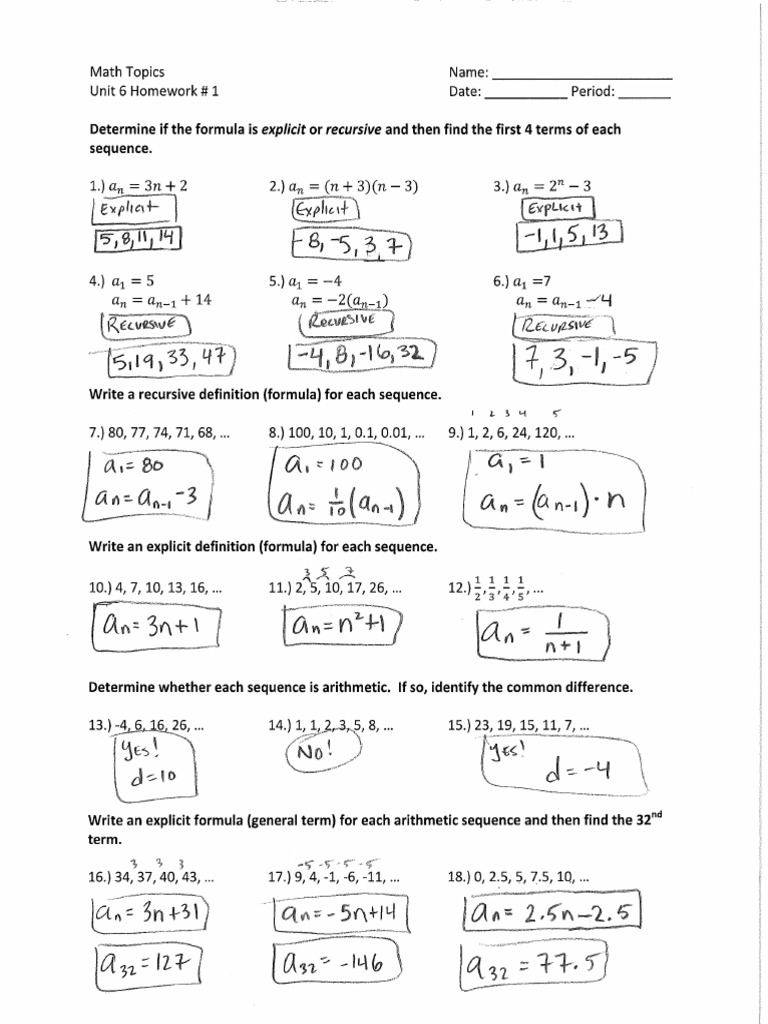 Math Topics Name: ____________
Unit 6 Homework # 1 Date: ____________ Period: ________
Determine if the formula is explicit or recursive and then find the first 4 terms of each
sequence.
1.) aₙ = 3n + 2 2.) aₙ = (n + 3)(n − 3) 3.) aₙ = 2ⁿ − 3
Explicit Explicit Explicit
5, 8, 11, 14 -8, -5, 3, 7 -1, 1, 5, 13
4.) a₁ = 5 5.) a₁ = −4 6.) a₁ =7
aₙ = aₙ₋₁ + 14 aₙ = −2(aₙ₋₁) aₙ = aₙ₋₁ − 4
Recursive Recursive Recursive
5, 19, 33, 47 -4, 8, -16, 32 7, 3, -1, -5
Write a recursive definition (formula) for each sequence.
1 2 3 4 5
7.) 80, 77, 74, 71, 68, ... 8.) 100, 10, 1, 0.1, 0.01, ... 9.) 1, 2, 6, 24, 120, ...
a₁ = 80 a₁ = 100 a₁ = 1
aₙ = aₙ₋₁ - 3 aₙ = 1/10 (aₙ₋₁) aₙ = (aₙ₋₁) · n
Write an explicit definition (formula) for each sequence.
3 5 7
10.) 4, 7, 10, 13, 16, ... 11.) 2, 5, 10, 17, 26, ... 12.) 1/2, 1/3, 1/4, 1/5, ...
aₙ = 3n + 1 aₙ = n² + 1 aₙ = 1/(n + 1)
Determine whether each sequence is arithmetic. If so, identify the common difference.
13.) -4, 6, 16, 26, ... 14.) 1, 1, 2, 3, 5, 8, ... 15.) 23, 19, 15, 11, 7, ...
Yes! No! Yes!
d = 10 d = -4
Write an explicit formula (general term) for each arithmetic sequence and then find the 32ⁿᵈ
term.
3 3 3 -5 -5 -5 -5
16.) 34, 37, 40, 43, ... 17.) 9, 4, -1, -6, -11, ... 18.) 0, 2.5, 5, 7.5, 10, ...
aₙ = 3n + 31 aₙ = -5n + 14 aₙ = 2.5n - 2.5
a₃₂ = 127 a₃₂ = -146 a₃₂ = 77.5